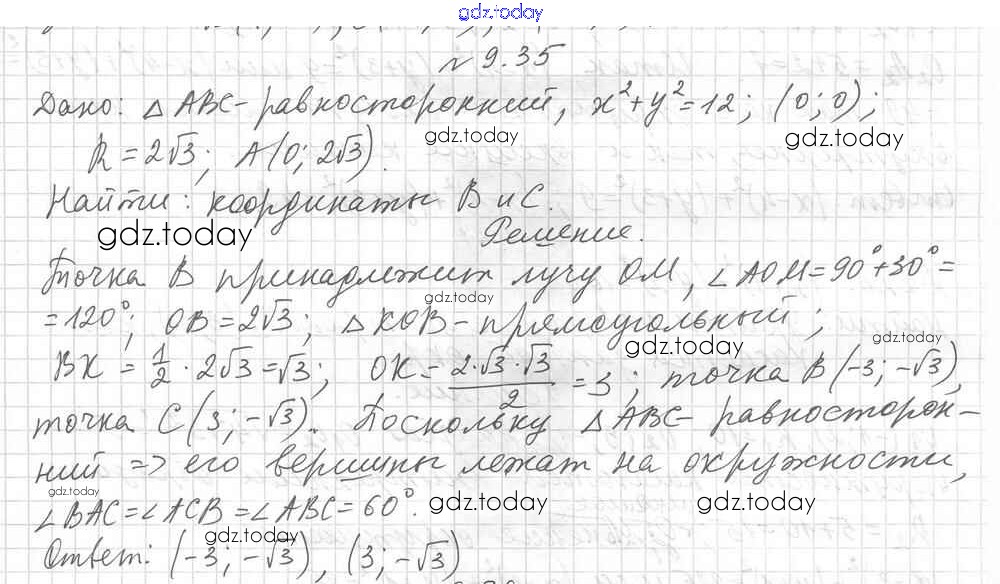 gdz.today
№ 9.35
Дано: △ ABC - равносторонний, x²+y²=12; (0; 0);
gdz.today
gdz.today
R = 2√3; A(0; 2√3).
Найти: координаты B и C.
gdz.today
Решение.
Точка B принадлежит лучу OM, ∠AOM=90°+30°=
gdz.today
=120°; OB=2√3; △ KOB - прямоугольный;
gdz.today
gdz.today
BK = 1/2 · 2√3 = √3; OK = 2·√3·√3/2 = 3; точка B(-3; -√3),
точка C(3; -√3). Поскольку △ABC - равносторон-
ний => его вершины лежат на окружности,
gdz.today
gdz.today
gdz.today
∠BAC=∠ACB=∠ABC=60°.
gdz.today
Ответ: (-3; -√3), (3; -√3)